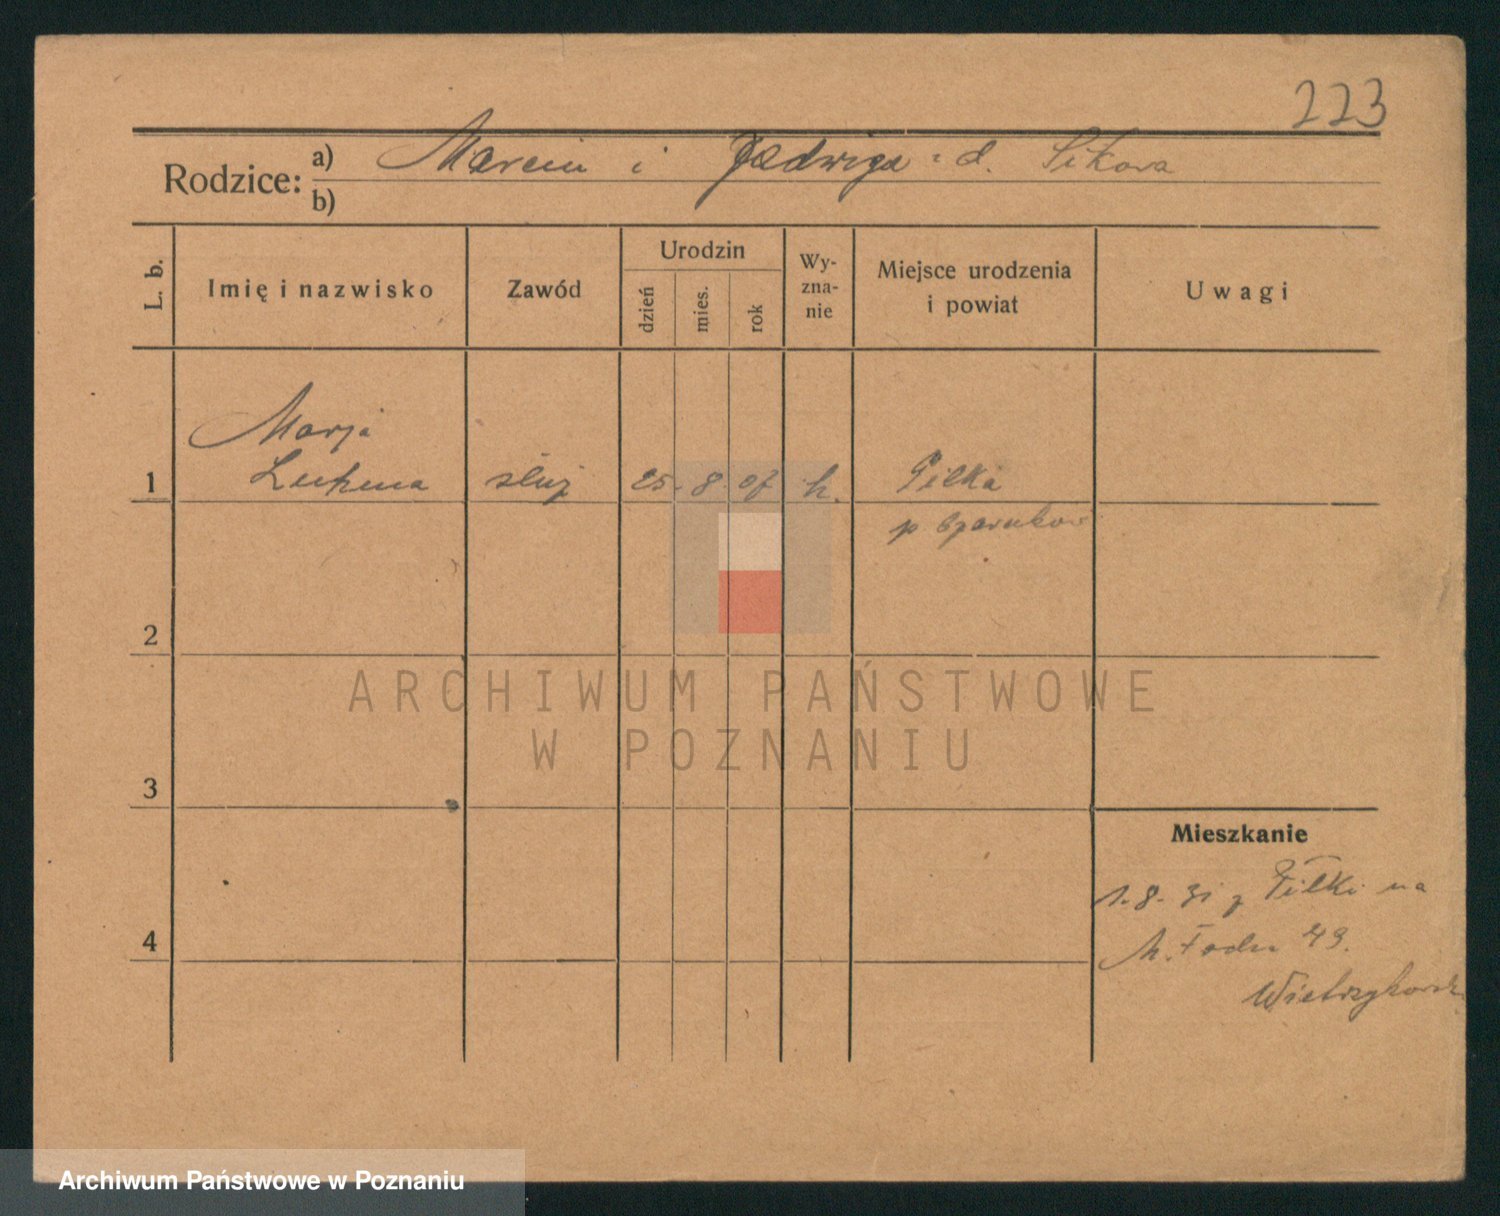 223
Rodzice: a) Marcin i Jadwiga z d. Sikora
b)
L. b.
Imię i nazwisko
Zawód
Urodzin
dzień
mies.
rok
Wy-
zna-
nie
Miejsce urodzenia
i powiat
Uwagi
Marja
1 służ 25. 8. 07 k. Piłka
p
2
3
4
Mieszkanie
1. 8. 31 z Piłki na
49.
ARCHIWUM PAŃSTWOWE
W POZNANIU
Archiwum Państwowe w Poznaniu